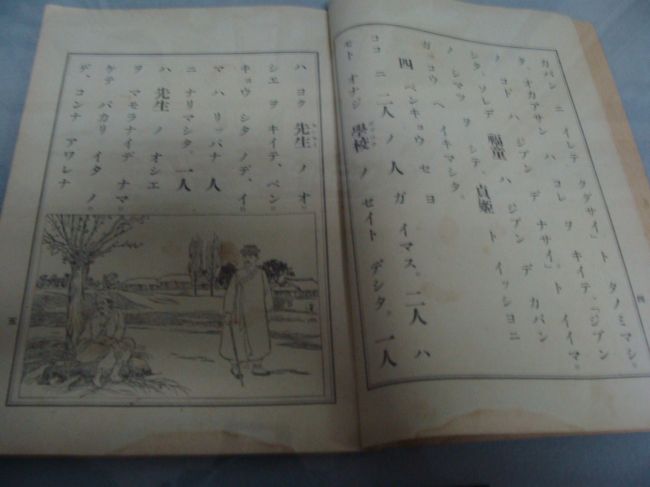 カバン ニ イレテ クダサイ」ト タノミマシ
タ。オカアサン ハ コレ ヲ キイテ、「ジブン
ノ コト ハ ジブン デ ナサイ」ト イイマ
シタ。ソレデ 福童 ハ ジブン デ カバン
ノ シマツ ヲ シテ、貞姫 ト イッショニ
ガッコウ ヘ イキマシタ。
四 ベンキョウ セヨ
ココ ニ 二人 ノ 人 ガ イマス。二人 ハ
モト オナジ 學校 ノ セイト デシタ。一人
四
ハ ヨク 先生 ノ オ
シエ ヲ キイテ、ベン
キョウ シタ ノデ、イ
マ ハ リッパナ 人
ニ ナリマシタ。一人
ハ 先生 ノ オシエ
ヲ マモラナイデ ナマ
ケテ バカリ イタ ノ
デ、コンナ アワレナ
五